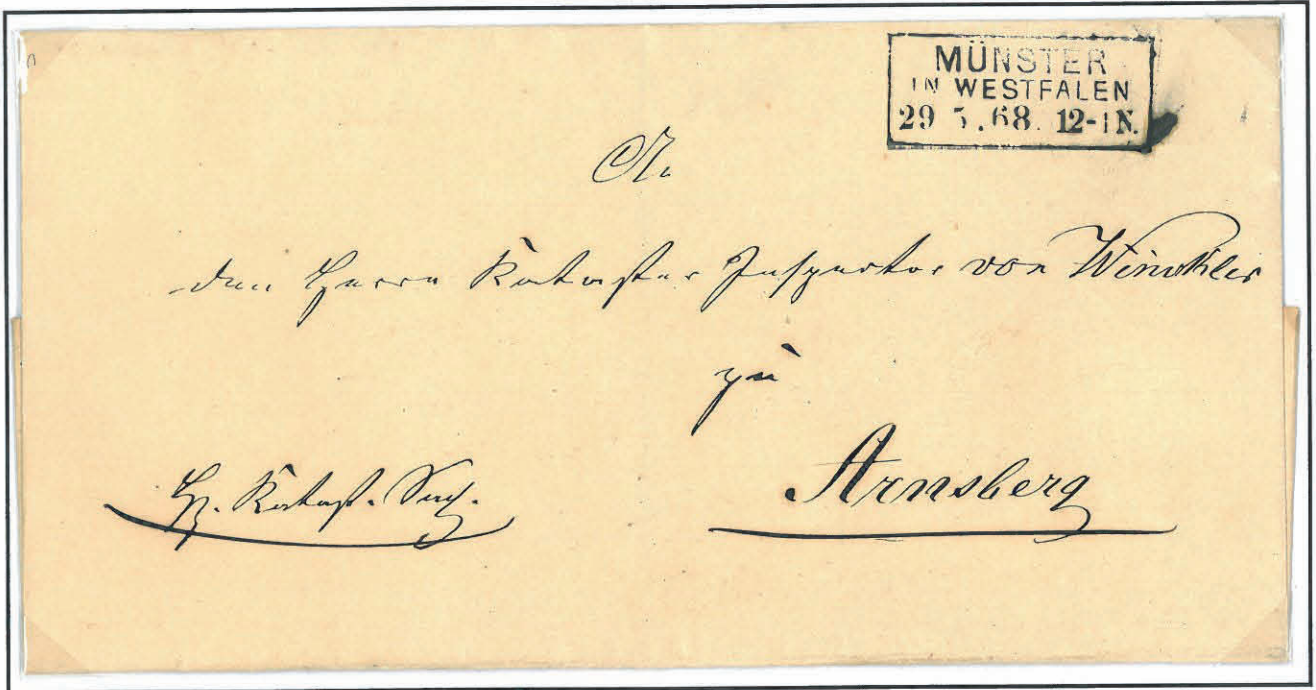 MÜNSTER
IN WESTFALEN
29 5.68. 12-1N.
An
den Herrn Kataster Inspector von Winckler
zu
Arnsberg
Katast.